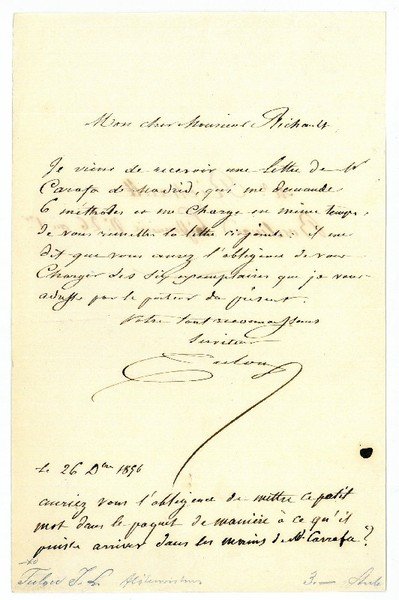 Mon cher Monsieur Richault,
Je viens de recevoir une lettre de Mr
Carafa de Madrid, qui me demande
6 méthodes et me charge en meme temps,
de vous remettre la lettre ci jointe. il me
dit que vous aurez l'obligence de vous
charger des six exemplaires que je vous
adresse par le porteur du présent.
Votre tout reconnaissant
Serviteur
Tulou
Le 26 Dbre 1856
auriez vous l'obligence de mettre ce petit
mot dans le paquet de manière à ce qu'il
puisse arriver dans les mains de Mr Carrafa?
Tulou J. L.
3.—